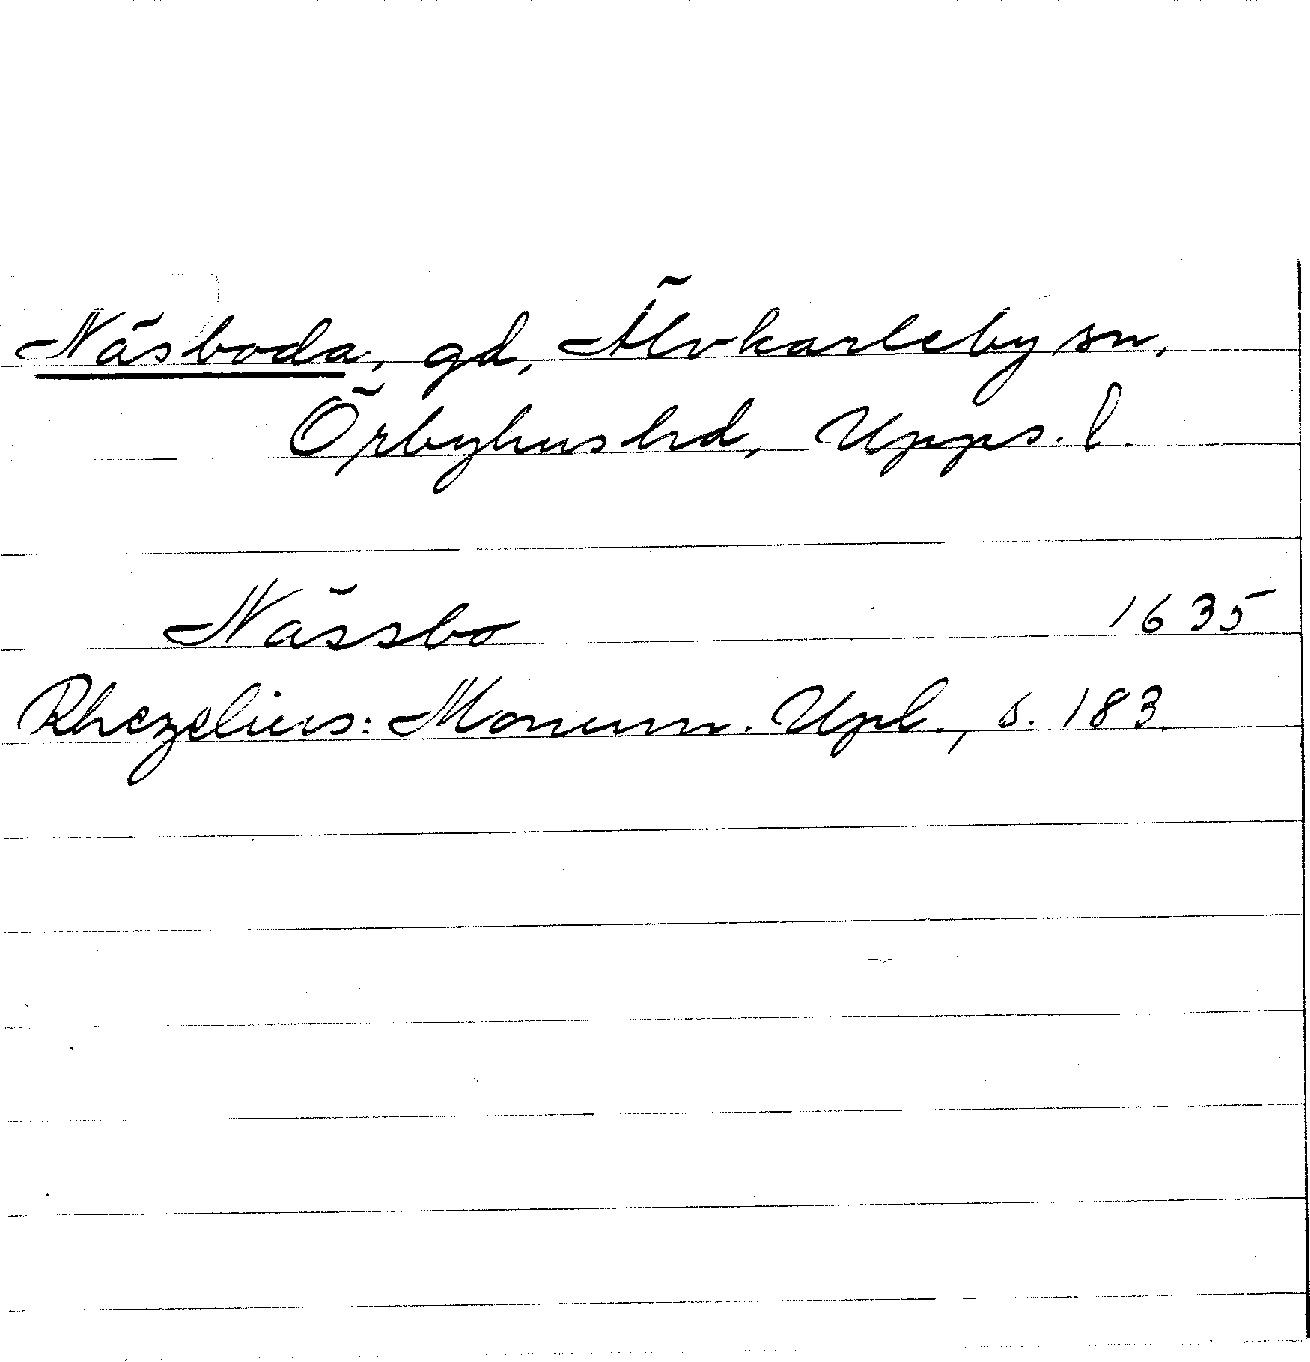 Näsboda, gd, Älvkarleby sn,
Örbyhus hd, Upps. l.
Nässbo 1635
Rhezelius: Monum. Upl., s. 183.